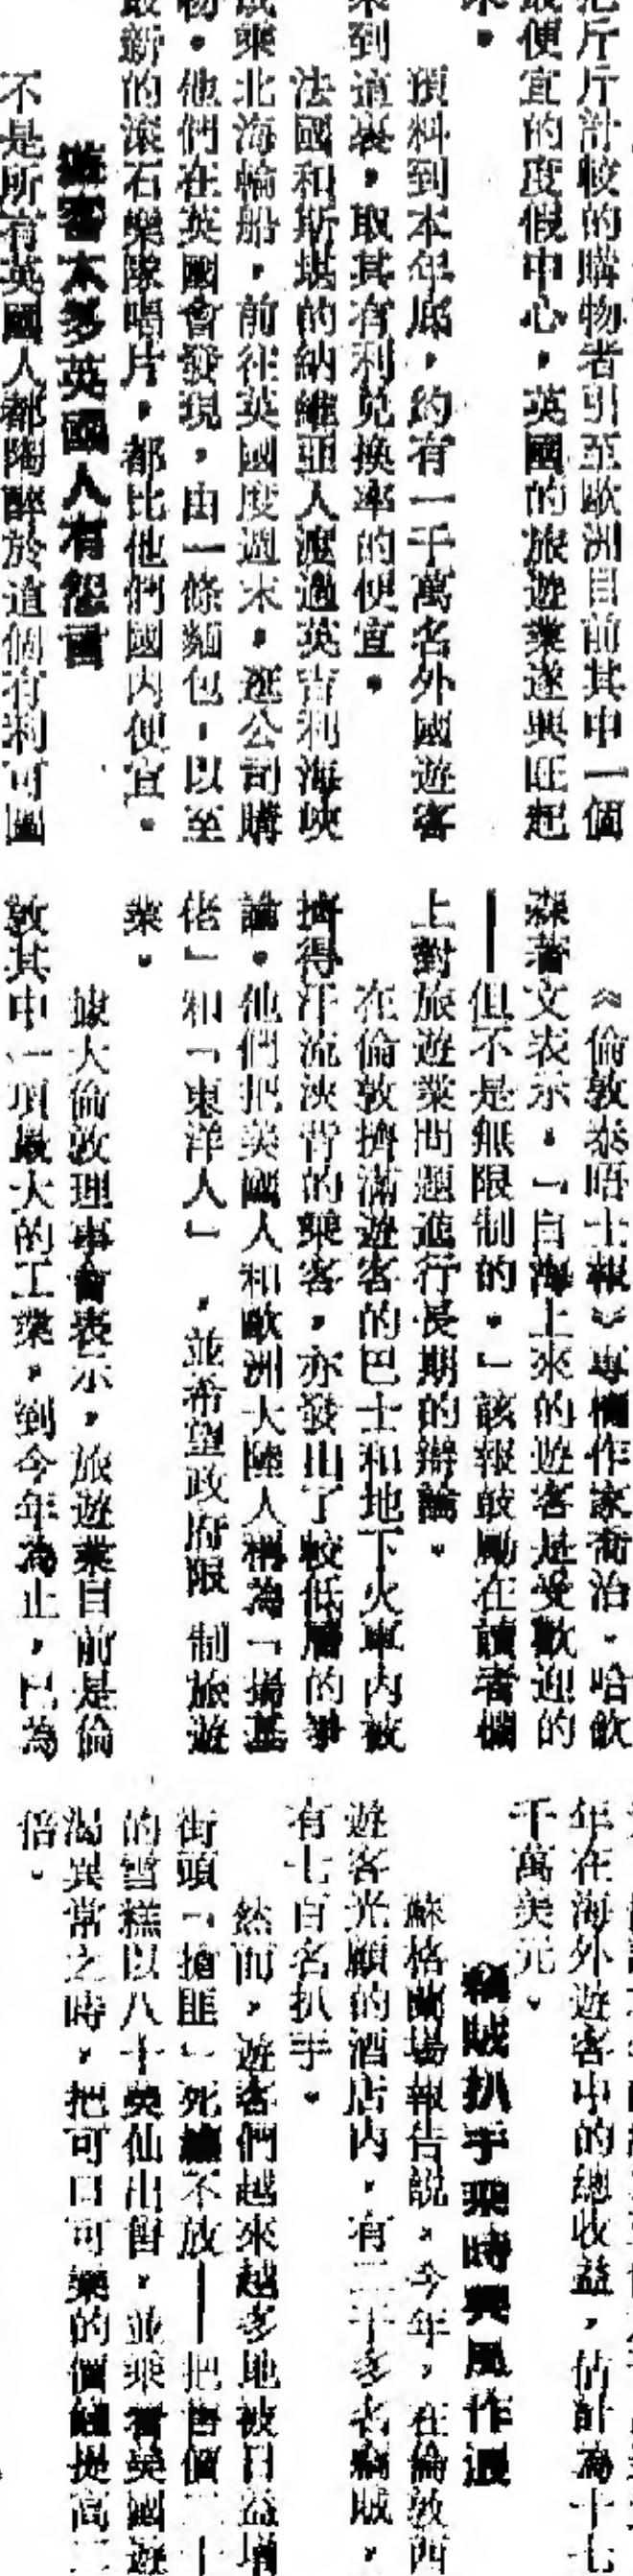 斤斤計較的購物者引至歐洲目前其中一個
便宜的度假中心，英國的旅遊業遂興旺起
來。
預料到本年底，約有一千萬名外國遊客
來到這裏，取其有利兌換率的便宜。
法國和斯堪的納維亞人渡過英吉利海峽
或乘北海輪船，前往英國度週末，逛公司購
物。他們在英國會發現，由一條麵包，以至
最新的滾石樂隊唱片，都比他們國內便宜。
遊客太多英國人有怨言
不是所有英國人都陶醉於這個有利可圖
《倫敦泰晤士報》專欄作家喬治·哈欽
森著文表示，「自海上來的遊客是受歡迎的
——但不是無限制的。」該報鼓勵在讀者欄
上對旅遊業問題進行長期的辯論。
在倫敦擠滿遊客的巴士和地下火車內被
擠得汗流浹背的乘客，亦發出了較低層的爭
論。他們把美國人和歐洲大陸人稱為「揚基
佬」和「東洋人」，並希望政府限制旅遊
業。
據大倫敦理事會表示，旅遊業目前是倫
敦其中一項最大的工業，到今年為止，已為
年在海外遊客中的總收益，估計為十七
千萬美元。
竊賊扒手乘時興風作浪
蘇格蘭場報告說，今年，在倫敦西
遊客光顧的酒店內，有二千多名竊賊，
有七百名扒手。
然而，遊客們越來越多地被日益增
街頭「搶匪」死纏不放——把售價二十
的雪糕以八十美仙出售，並乘着美國遊
渴異常之時，把可口可樂的價錢提高二
倍。